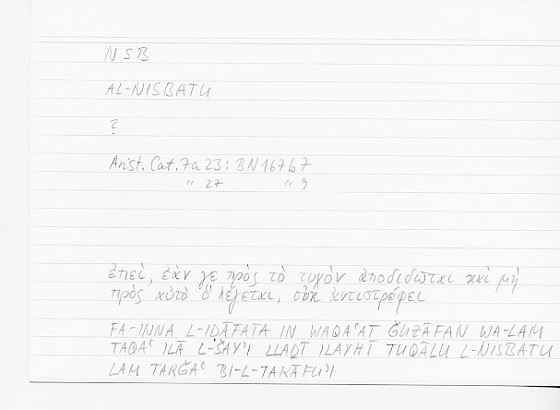 NSB
AL-NISBATU
?
Arist. Cat. 7a 23: BN 167b7
" 27 " 9
ἐπεί, ἐάν γε πρὸς τὸ τυχὸν ἀποδιδῶται καὶ μὴ
πρὸς αὐτὸ ὃ λέγεται, οὐκ ἀντιστρέφει
FA-INNA L-IḌĀFATA IN WAQAʿAT ǦUZĀFAN WA-LAM
TAQAʿ ILĀ L-ŠAYʾI LLAḎĪ ILAYHĪ TUQĀLU L-NISBATU
LAM TARǦAʿ BI-L-TAKĀFUʾI